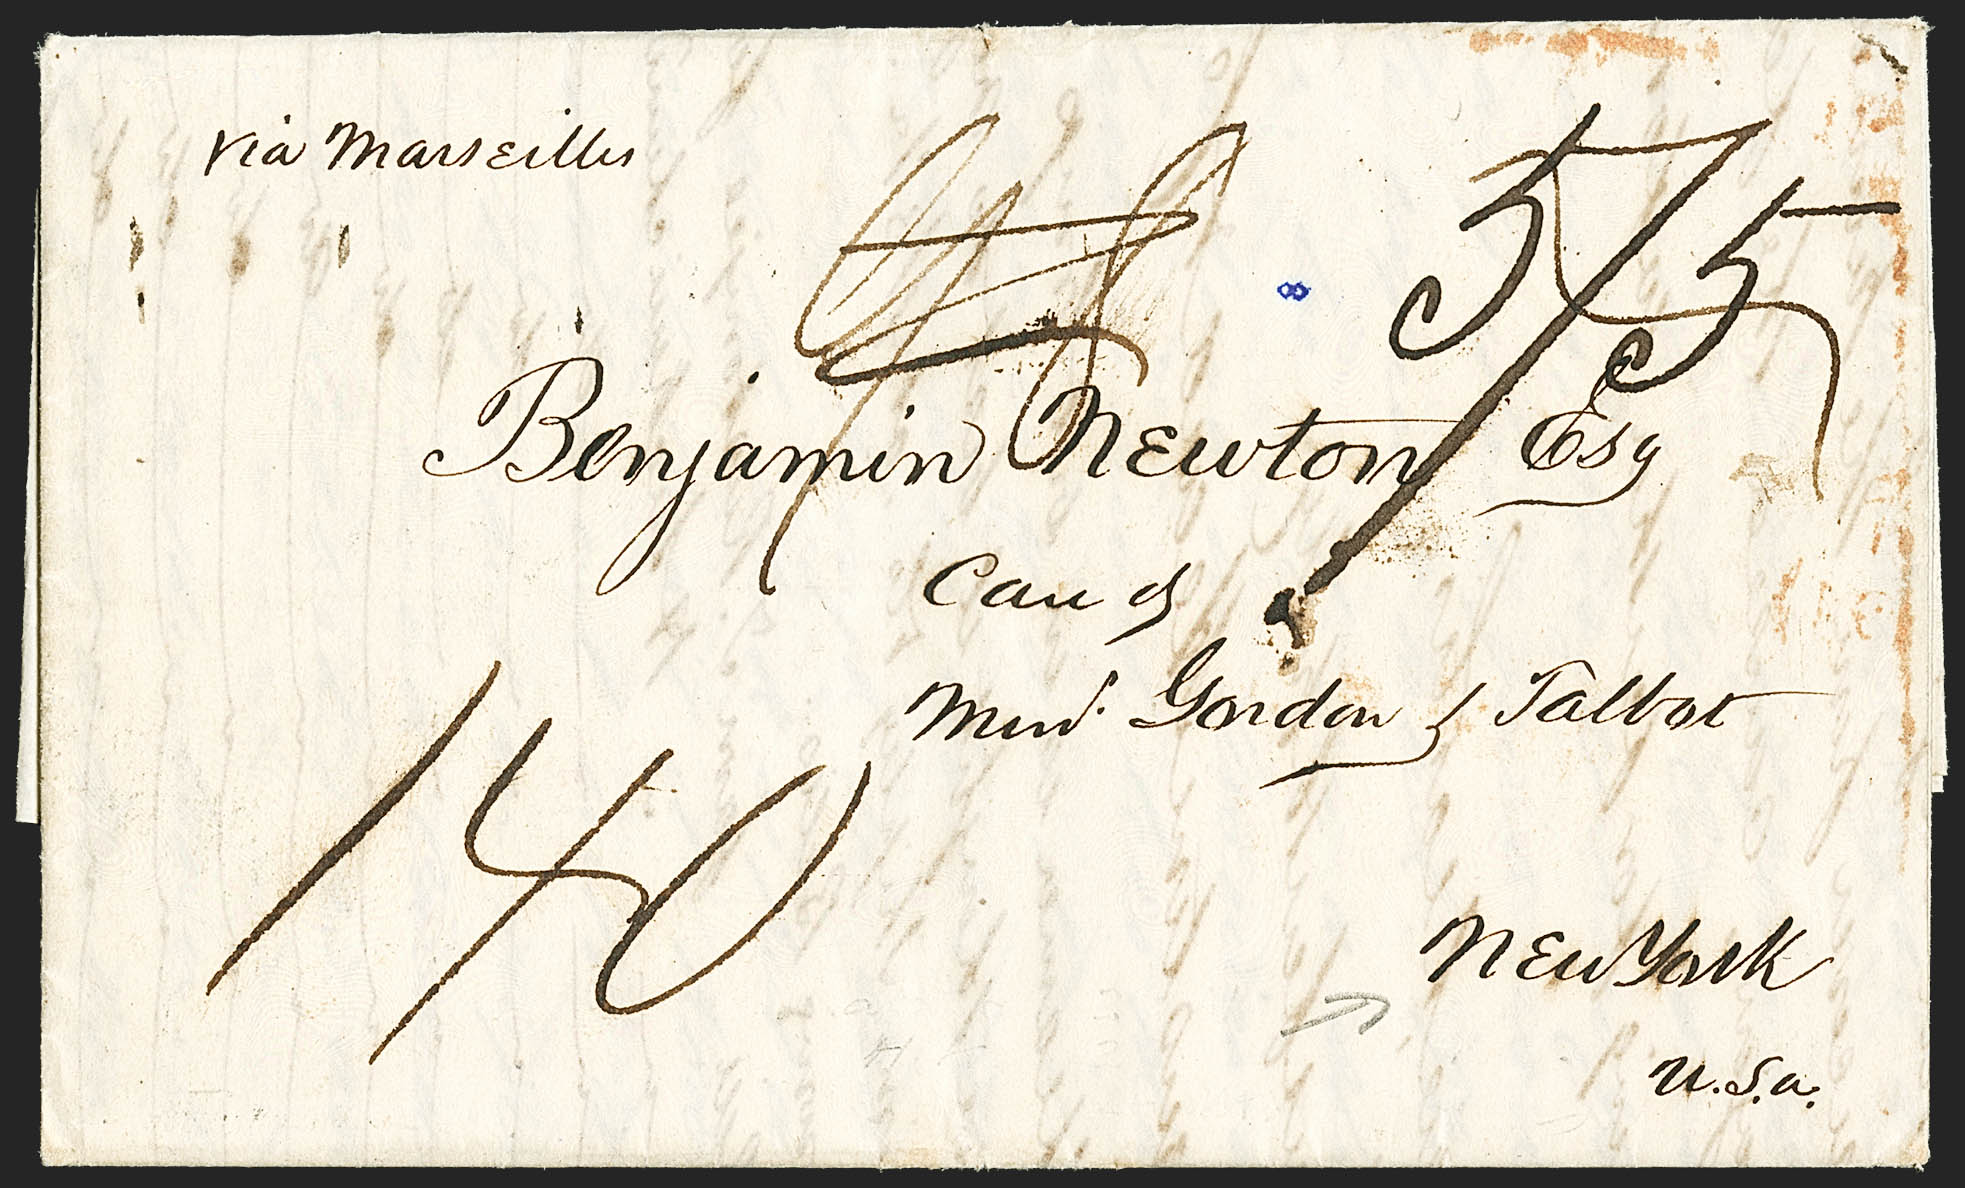 via Marseilles
5/5
Benjamin Newton Esq
Care of
Messrs. Gordon & Talbot
140
New York
U.S.a.